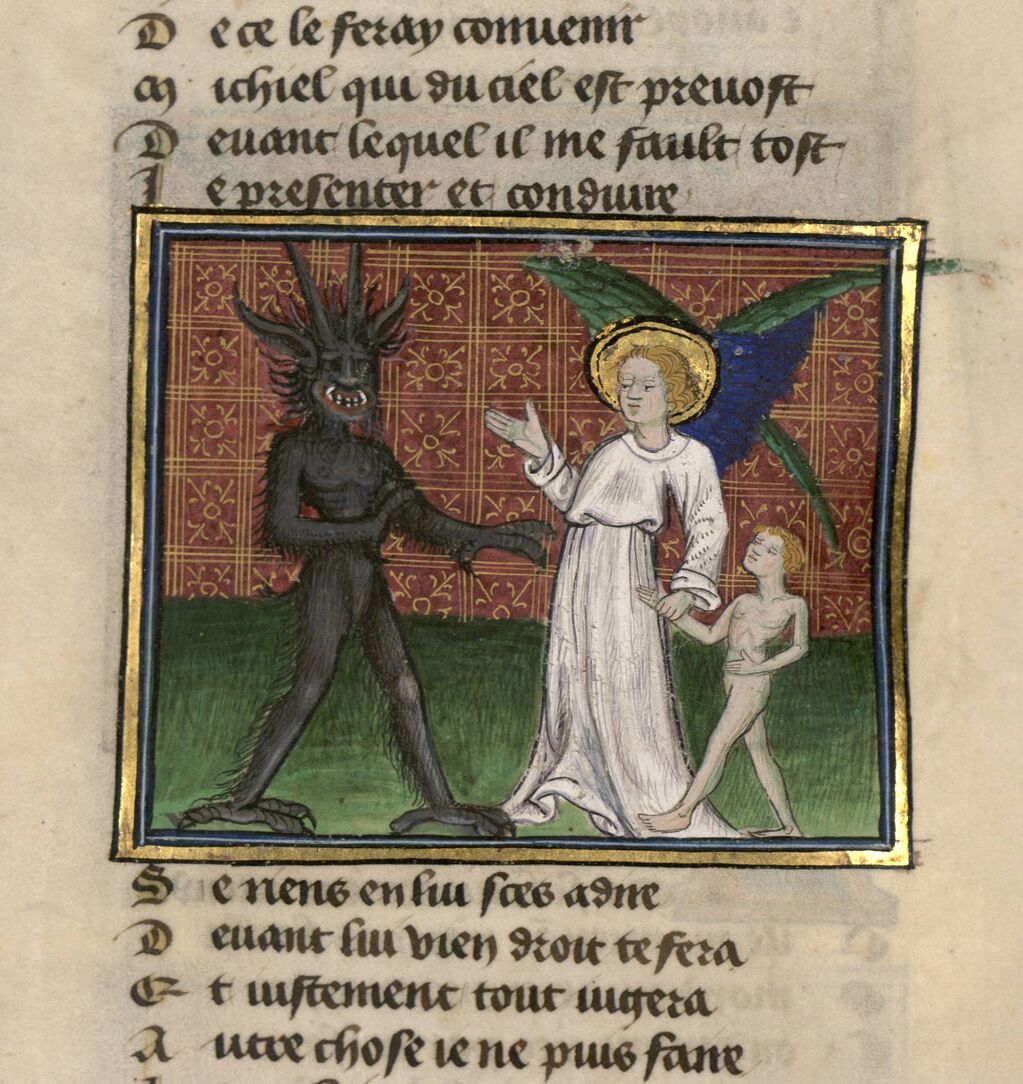 De ce le feray conuenir
Michiel qui du ciel est preuost
Deuant lequel il me fault tost
Ie presenter et conduire
Se riens en lui sces adire
Deuant lui vien droit te fera
Et iustement tout iugera
Autre chose ie ne puis faire